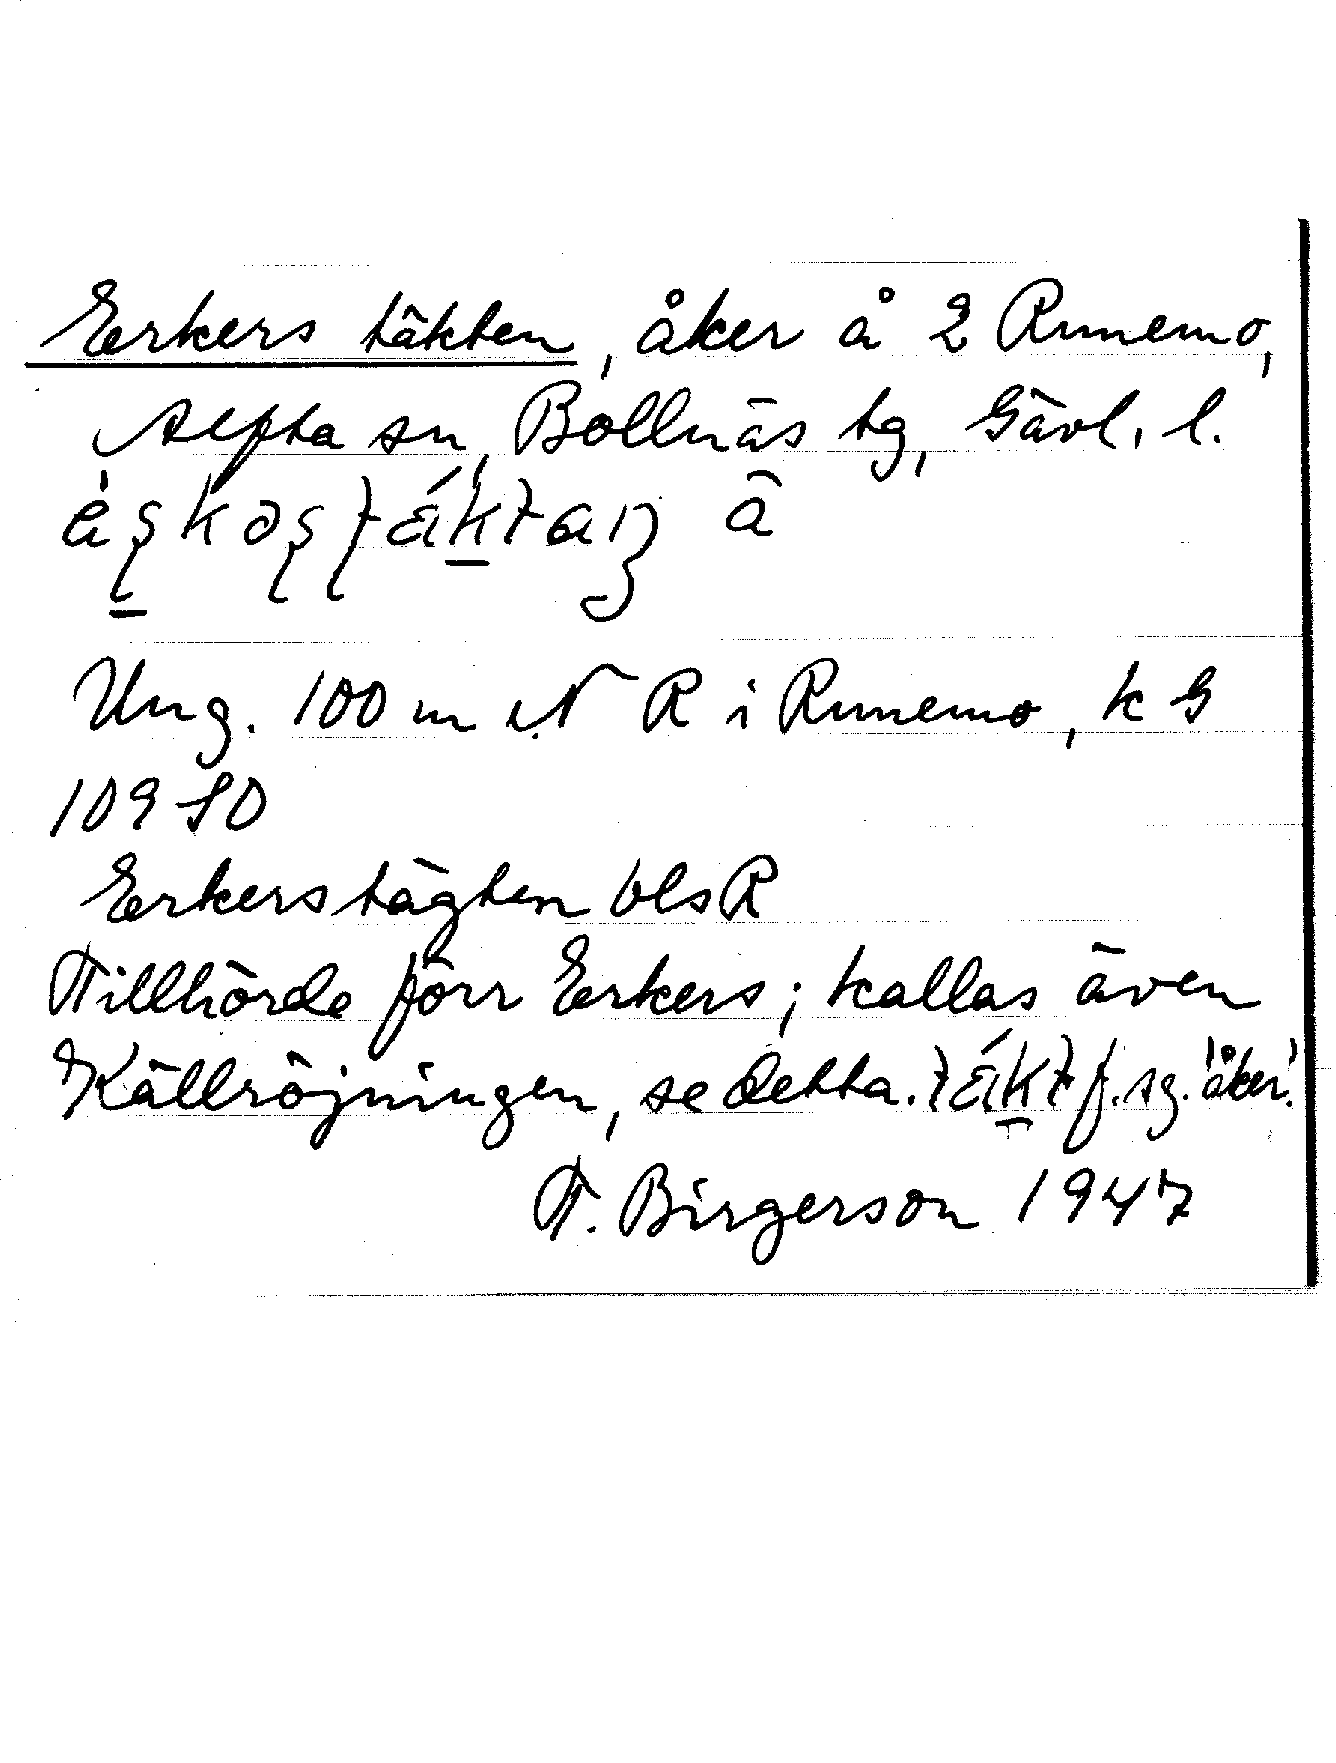 Eerkers täkten, åker å 2 Runemo,
Alfta sn, Bollnäs tg, Gävl. l.
Ung. 100 m N R i Runemo, k G
109 SO
Eerkers tägten bls R
Tillhörde förr Eerkers; kallas även
Källröjningen, se detta. f. sg. 'åker'.
T. Birgerson 1947